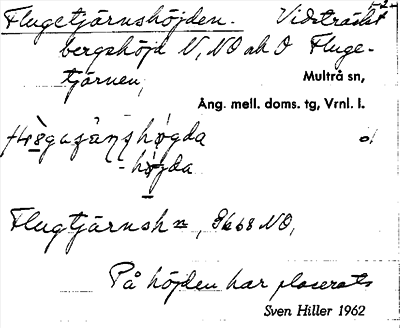 Flugetjärnshöjden. Vidsträckt
bergshöjd N, NO och O Fluge-
tjärnen,
Multrå sn,
Ång. mell. doms. tg, Vrnl. l.
høgda
- høgda
Flugtjärnsh=, 3668 NO,
På höjden har placerats
Sven Hiller 1962